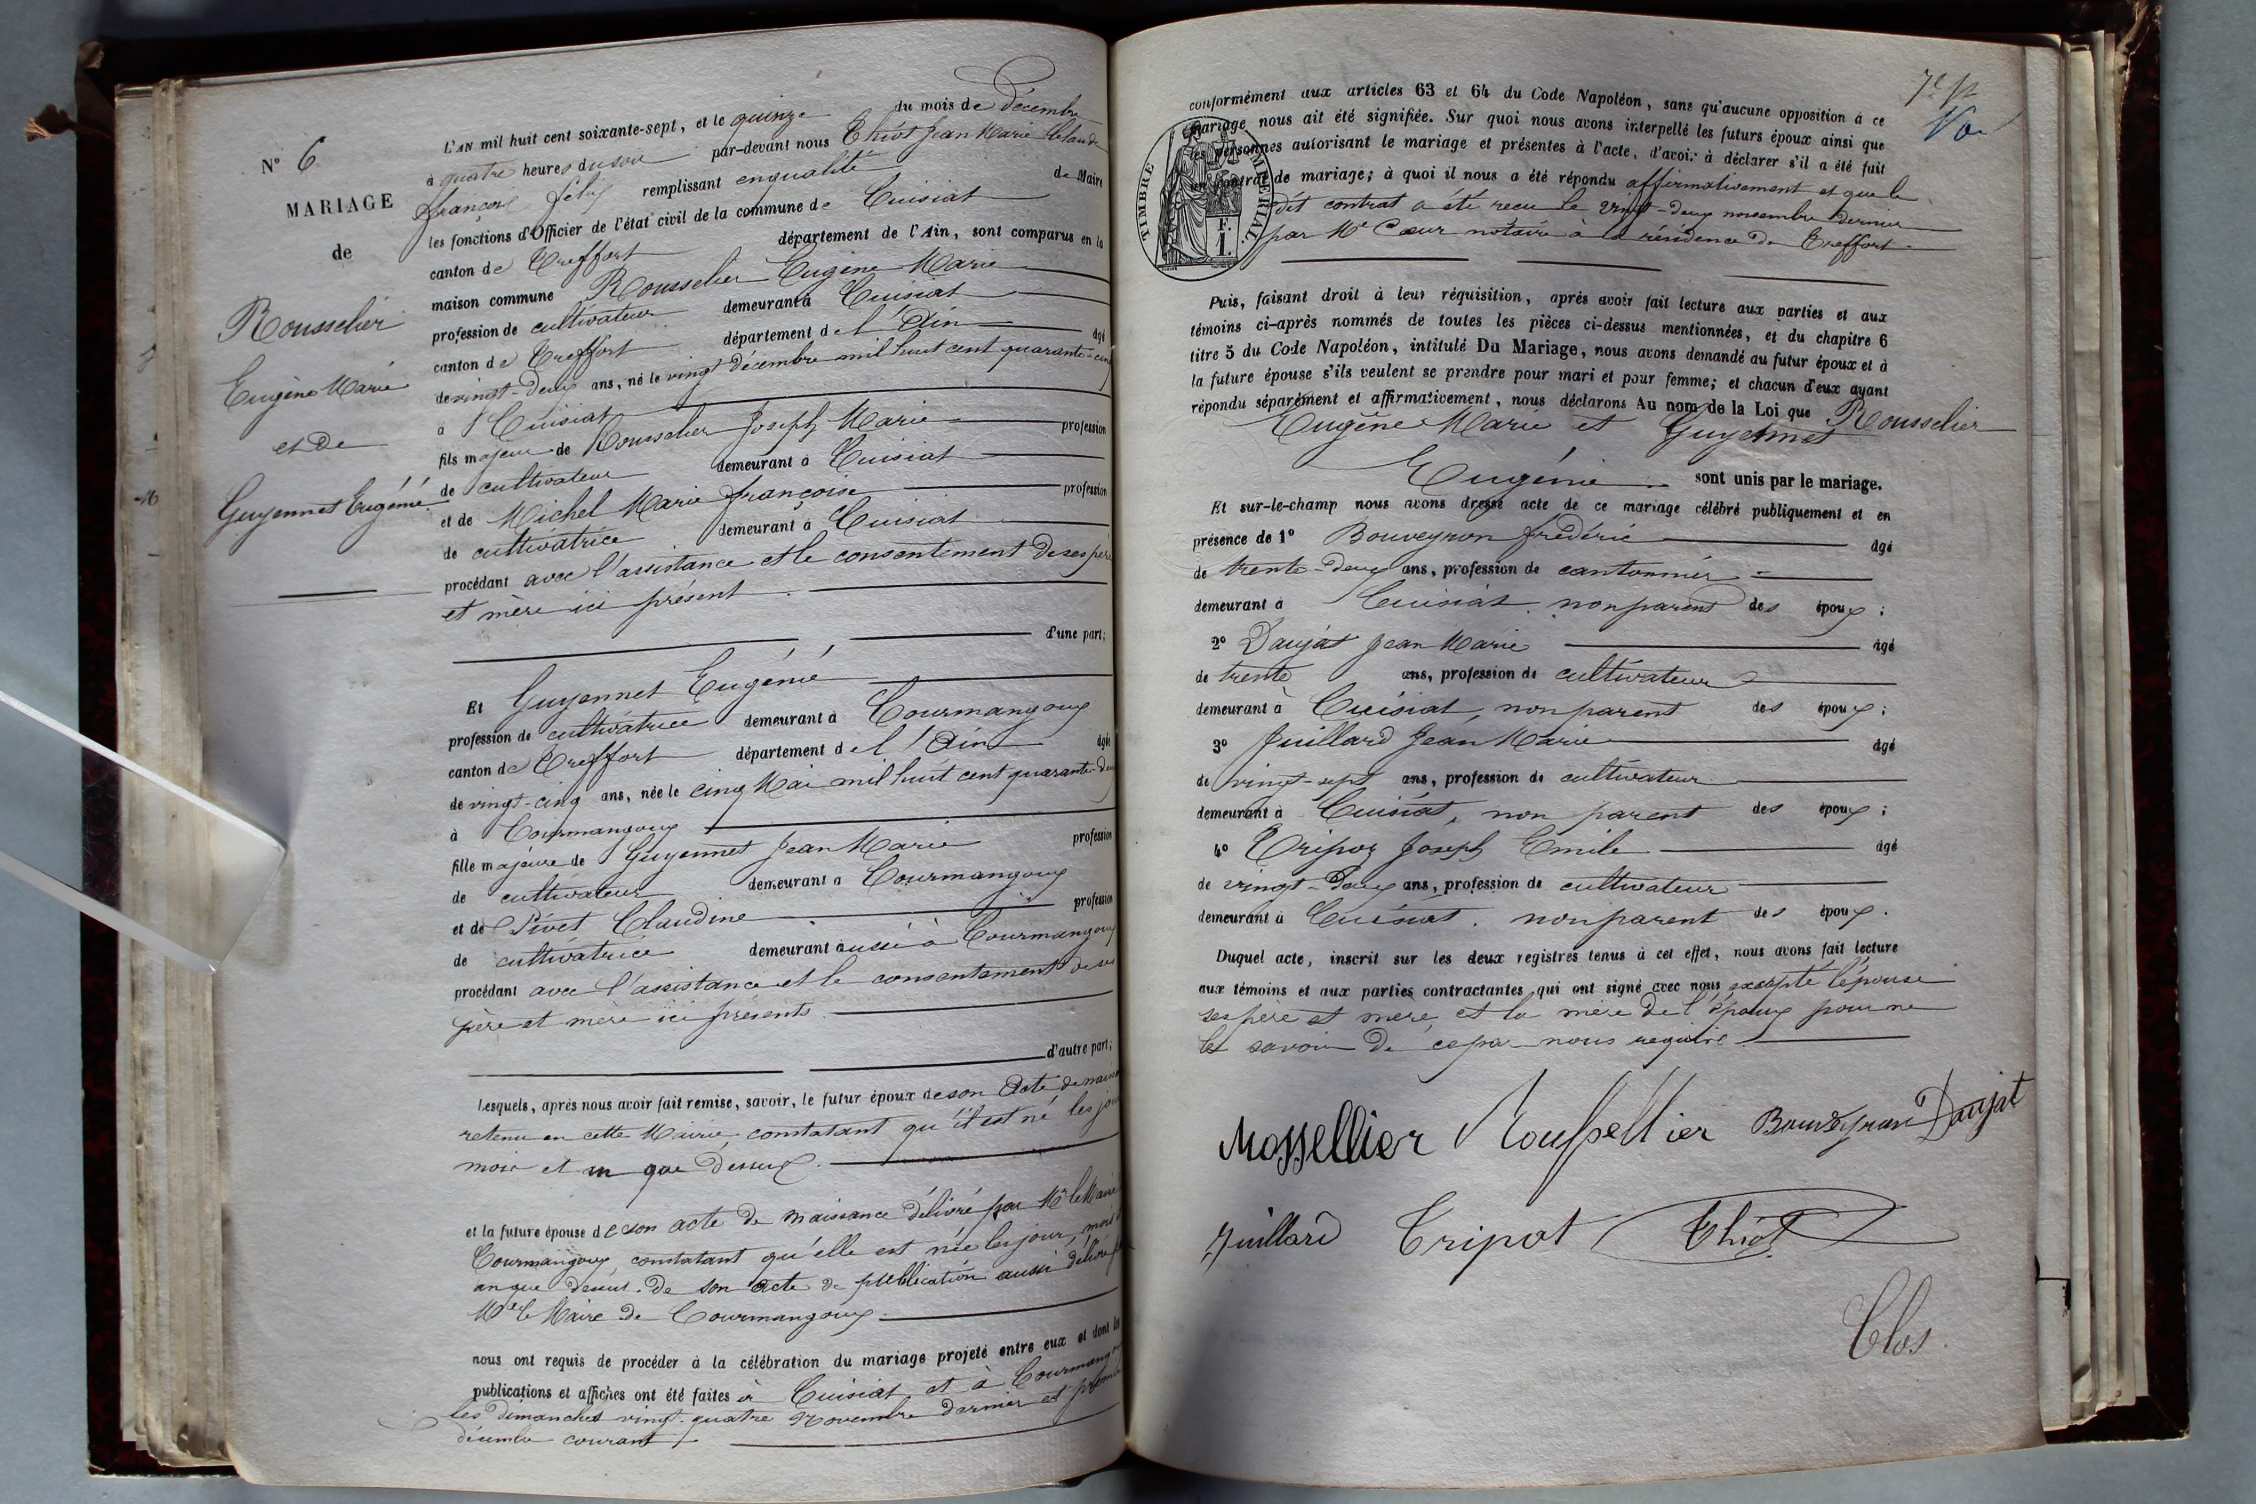 N° 6
MARIAGE
de
Rousselier
Eugène Marie
et de
Guyennet Eugénie
L'AN mil huit cent soixante-sept, et le quinze du mois de Décembre
à quatre heures du soir par-devant nous Thiot Jean Marie
françois félix remplissant en qualité de Maire
les fonctions d'Officier de l'état civil de la commune de Cuisiat
canton de Treffort département de l'Ain, sont comparus en la
maison commune Rousselier Eugène Marie
profession de cultivateur demeurant à Cuisiat
canton de Treffort département de l'Ain âgé
de vingt-deux ans, né le vingt décembre mil huit cent quarante-cinq
à Cuisiat
fils majeur de Rousselier Joseph Marie profession
de cultivateur demeurant à Cuisiat
et de Michel Marie françoise profession
de cultivatrice demeurant à Cuisiat
procédant avec l'assistance et le consentement de ses père
et mère ici présent
d'une part;
Et Guyennet Eugénie
profession de cultivatrice demeurant à Courmangoux
canton de Treffort département de l'Ain âgée
de vingt-cinq ans, née le cinq Mai mil huit cent quarante-deux
à Courmangoux
fille majeure de Guyennet Jean Marie profession
de cultivateur demeurant à Courmangoux
et de Pivet Claudine profession
de cultivatrice demeurant aussi à Courmangoux
procédant avec l'assistance et le consentement de ses
père et mère ici présents
d'autre part;
Lesquels, après nous avoir fait remise, savoir, le futur époux de son Acte de naissance
retenu en cette Mairie, constatant qu'il est né les jour
mois et an que dessus.
et la future épouse de son acte de naissance délivré par Mr le Maire
Courmangoux, constatant qu'elle est née les jour, mois et
an que dessus. De son acte de publication aussi délivré par
Mr le Maire de Courmangoux.
nous ont requis de procéder à la célébration du mariage projeté entre eux et dont les
publications et affiches ont été faites à Cuisiat et à Courmangoux
les dimanches vingt-quatre Novembre dernier et premier
décembre courant
7e
conformément aux articles 63 et 64 du Code Napoléon, sans qu'aucune opposition à ce
mariage nous ait été signifiée. Sur quoi nous avons interpellé les futurs époux ainsi que
les personnes autorisant le mariage et présentes à l'acte, d'avoir à déclarer s'il a été fait
un contrat de mariage; à quoi il nous a été répondu affirmativement et que le
dit contrat a été recu le vingt-deux novembre dernier
par Me Cœur notaire à la résidence de Treffort
TIMBRE IMPERIAL.
F.
I.
Puis, faisant droit à leur réquisition, après avoir fait lecture aux parties et aux
témoins ci-après nommés de toutes les pièces ci-dessus mentionnées, et du chapitre 6
titre 5 du Code Napoléon, intitulé Du Mariage, nous avons demandé au futur époux et à
la future épouse s'ils veulent se prendre pour mari et pour femme; et chacun d'eux ayant
répondu séparément et affirmativement, nous déclarons Au nom de la Loi que Rousselier
Eugène Marie et Guyennet
Eugénie sont unis par le mariage.
Et sur-le-champ nous avons dressé acte de ce mariage célébré publiquement et en
présence de 1° Bouveyron frédéric âgé
de trente-deux ans, profession de cantonnier
demeurant à Cuisiat non parent des époux;
2° Daujat Jean Marie âgé
de trente ans, profession de cultivateur
demeurant à Cuisiat, non parent des époux;
3° Juillard Jean Marie âgé
de vingt-sept ans, profession de cultivateur
demeurant à Cuisiat, non parent des époux;
4° Tripoz Joseph Emile âgé
de vingt-deux ans, profession de cultivateur
demeurant à Cuisiat. non parent des époux.
Duquel acte, inscrit sur les deux registres tenus à cet effet, nous avons fait lecture
aux témoins et aux parties contractantes qui ont signé avec nous, excepté l'épouse
ses père et mère, et la mère de l'époux pour ne
le savoir de ce par nous requis
Mossellier Roussellier Bouveyron Daujat
Juillard Tripot Thiot
Clos.